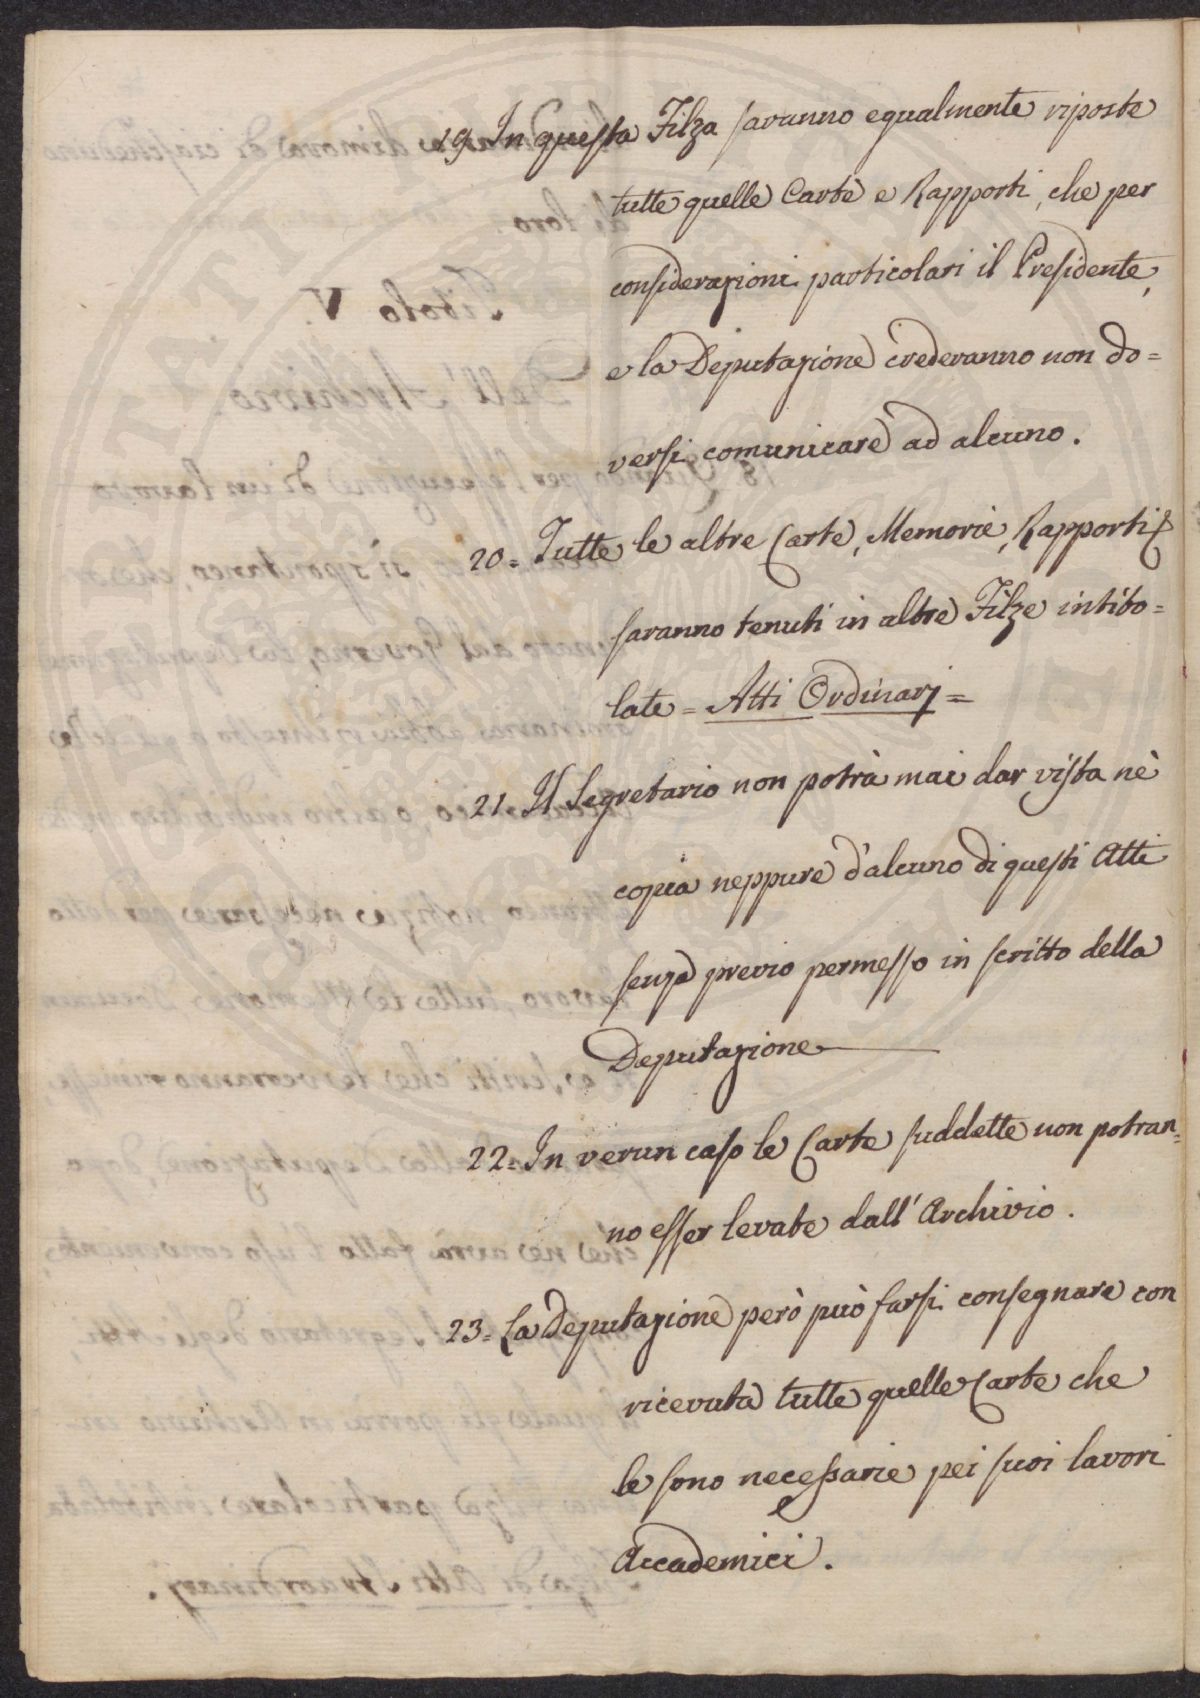 19. In questa Filza saranno egualmente riposte
tutte quelle Carte e Rapporti, che per
considerazioni particolari il Presidente,
e la Deputazione crederanno non do=
versi comunicare ad alcuno.
20= Tutte le altre Carte, Memorie, Rapporti
saranno tenuti in altre Filze intito=
late = Atti Ordinarj =
21. Il Segretario non potrà mai dar vista nè
copia neppure d'alcuno di questi Atti
senza previo permesso in scritto della
Deputazione
22= In verun caso le Carte suddette non potran=
no esser levate dall'Archivio.
23= La Deputazione però può farsi consegnare con
ricevuta tutte quelle Carte che
le sono necessarie pei suoi lavori
Accademici.